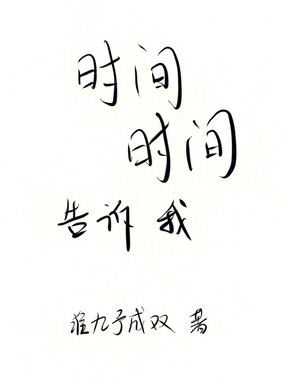 时间
时间
告诉我
淮九予成双 著